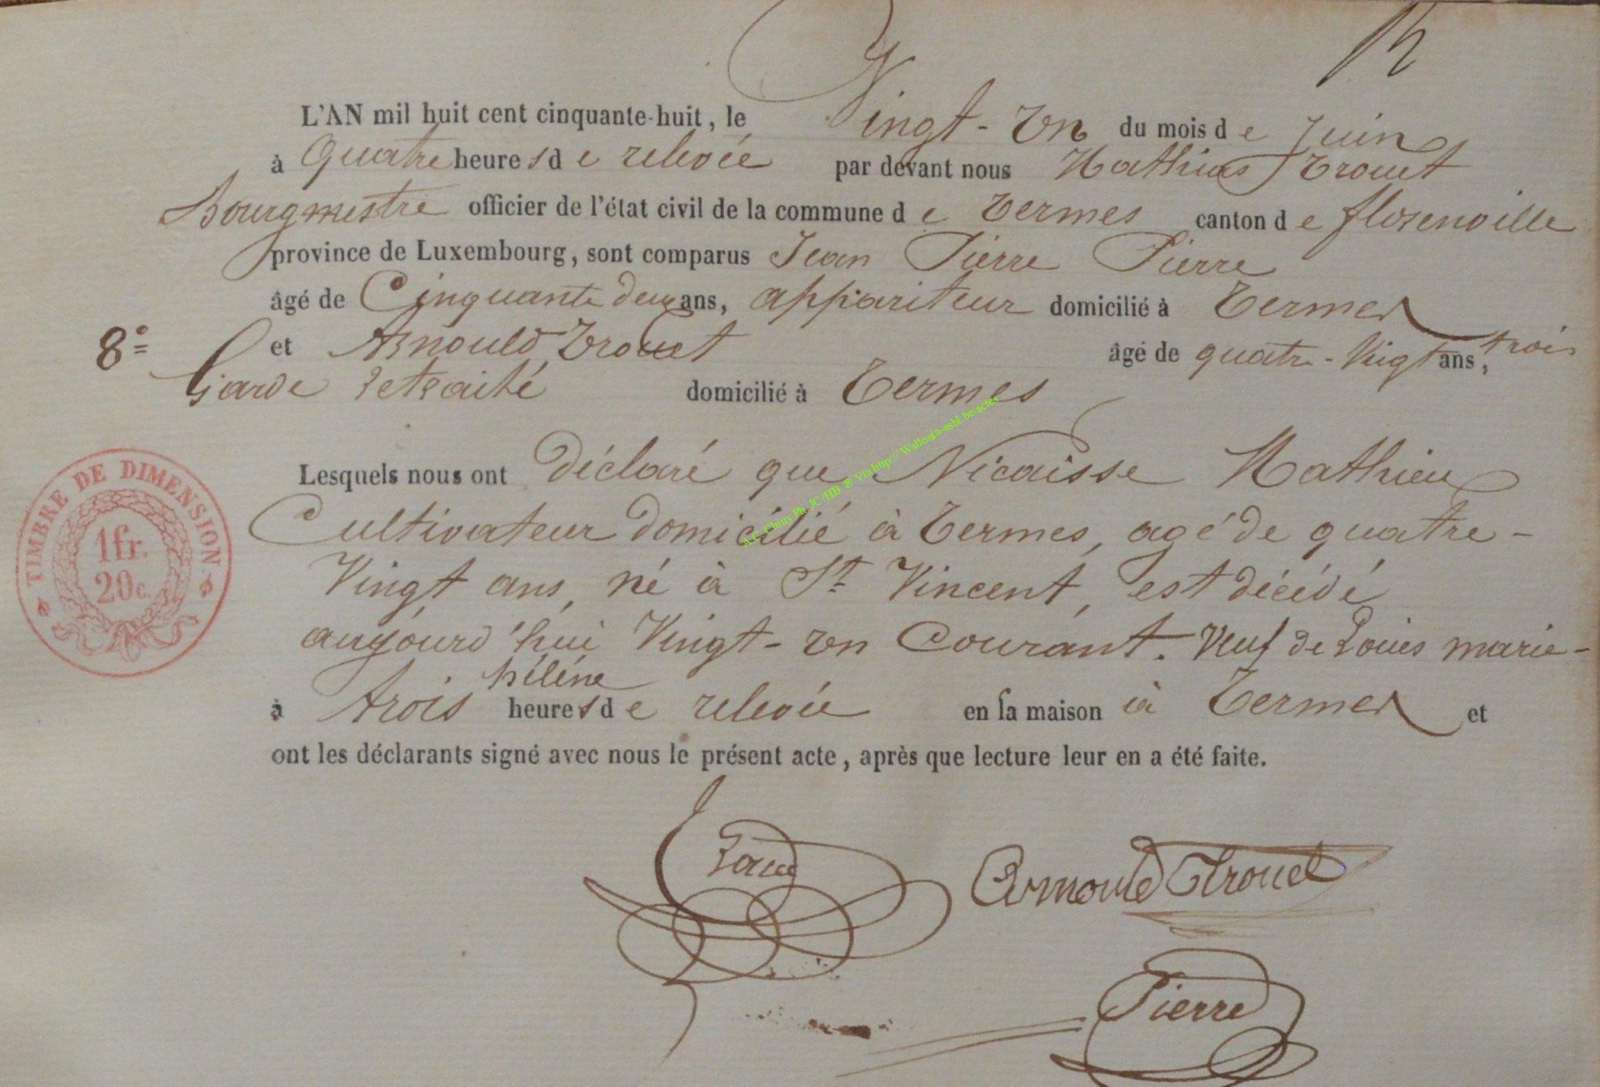 L'AN mil huit cent cinquante-huit, le Vingt-Un du mois de Juin
à Quatre heures de relevée par devant nous Mathias Trouet
Bourgmestre officier de l'état civil de la commune de Termes canton de florenville
province de Luxembourg, sont comparus Jean Pierre Pierre
âgé de Cinquante deux ans, appariteur domicilié à Termes
8e et Arnould Trouet âgé de quatre-Vingt trois ans,
Garde retraité domicilié à Termes
Lesquels nous ont déclaré que Nicaisse Mathieu
Cultivateur domicilié à Termes, agé de quatre-
Vingt ans, né à St Vincent, est décédé
aujourd'hui Vingt-un Courant. Veuf de Louis marie-
hélène
à trois heures de relevée en sa maison à Termes et
ont les déclarants signé avec nous le présent acte, après que lecture leur en a été faite.
TIMBRE DE DIMENSION
1fr.
20c.
Arnould Trouet
Pierre